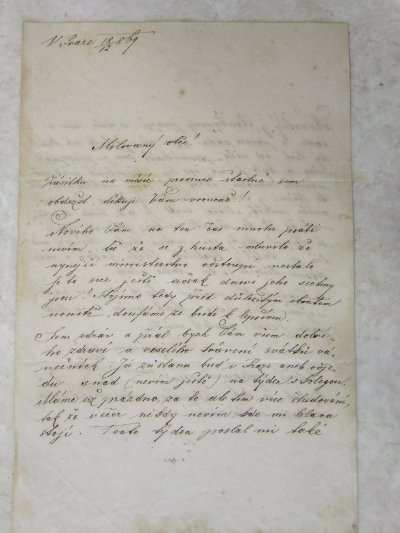 V Praze 18/12 869
Milovaný otče!
Zásilku na měsíc prosinec šťastně sem
obdržel děkuji Vám vroucně!
Nového Vám na ten čas mnoho psáti
nevím, leč že se z husta mluvilo že
nynější ministerstvo odstoupí, nestalo
je to sice ještě avšak dnové jeho sečteny
jsou. Stojíme tedy před důležitým obratem
doufáme že bude k lepšímu.
Jsem zdráv a přál bych Vám všem dobré-
ho zdraví a veselého trávení svátků vá-
nočních. Já zůstanu buď v Praze aneb odje-
du snad (nevím ještě) na týden s
Máme už prázdno, za to ale tím více študování,
tak že večer někdy nevím kde mi hlava
stojí. Tento týden poslal mi také